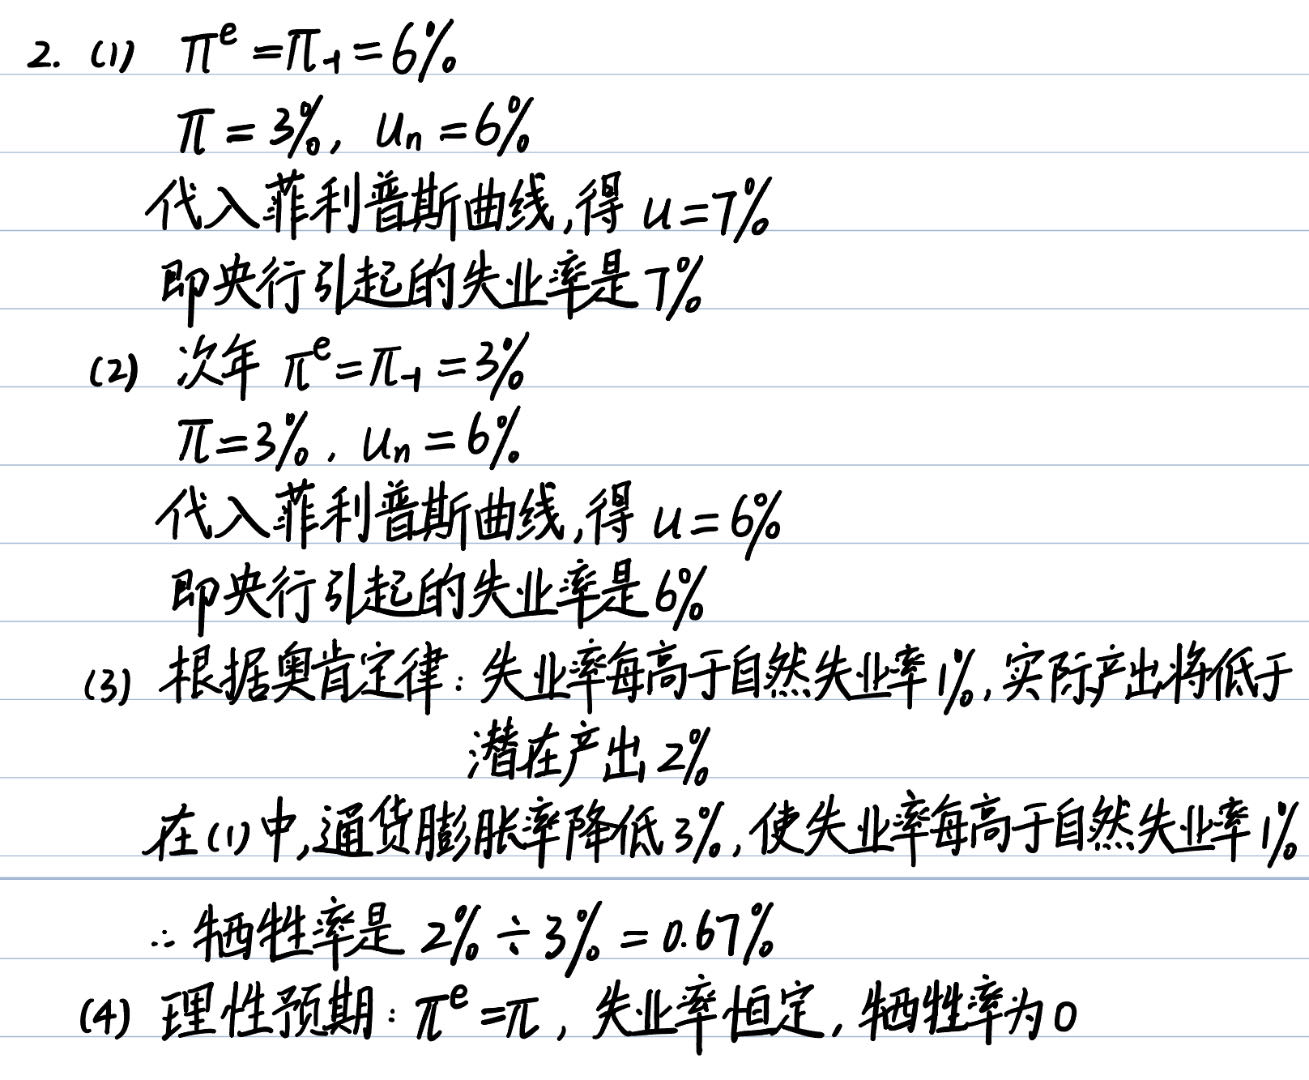 2. (1) π^e = π₋₁ = 6%
π = 3%, uₙ = 6%
代入菲利普斯曲线,得 u = 7%
即央行引起的失业率是7%
(2) 次年 π^e = π₋₁ = 3%
π = 3%, uₙ = 6%
代入菲利普斯曲线,得 u = 6%
即央行引起的失业率是6%
(3) 根据奥肯定律: 失业率每高于自然失业率1%, 实际产出将低于
潜在产出2%
在(1)中,通货膨胀率降低3%, 使失业率每高于自然失业率1%
∴ 牺牲率是 2% ÷ 3% = 0.67%
(4) 理性预期: π^e = π, 失业率恒定, 牺牲率为0